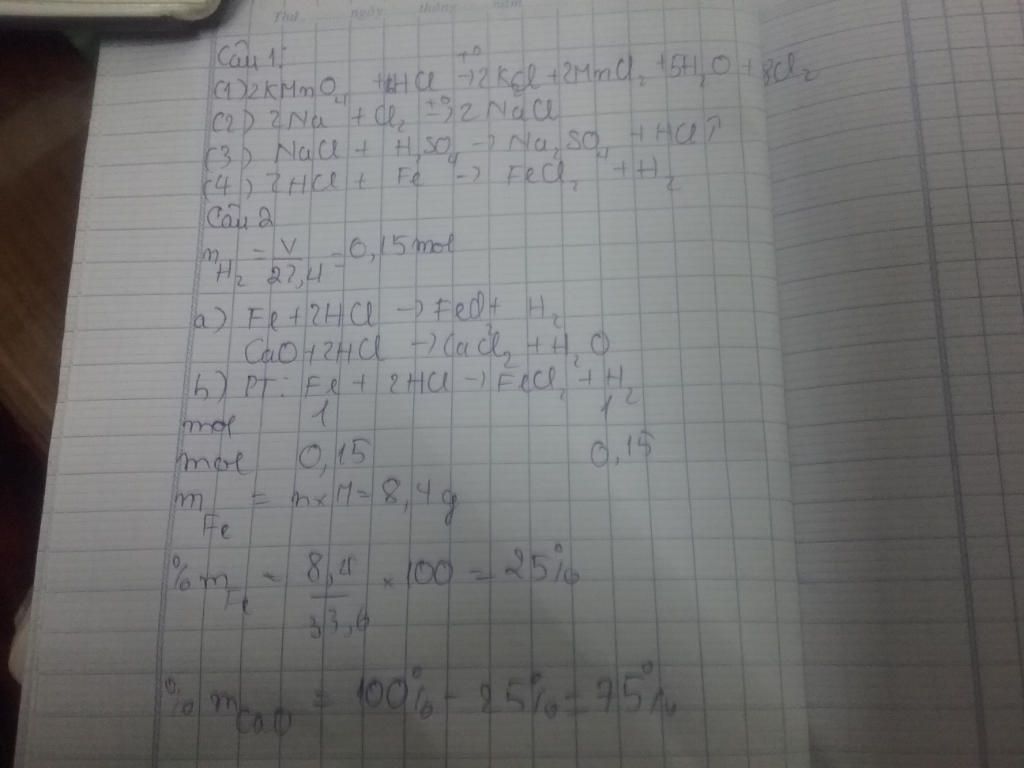 Thứ ngày tháng năm
Câu 1:
(1) 2KMnO4 + HCl →t° 2KCl + 2MnCl2 + 5H2O + 8Cl2
(2) 2Na + Cl2 →t° 2NaCl
(3) NaCl + H2SO4 → Na2SO4 + HCl↑
(4) 2HCl + Fe → FeCl2 + H2
Câu 2
nH2 = V/22,4 = 0,15 mol
a) Fe + 2HCl → FeCl2 + H2
CaO + 2HCl → CaCl2 + H2O
b) PT: Fe + 2HCl → FeCl2 + H2
mol 1 1
mol 0,15 0,15
mFe = n×M = 8,4g
%mFe = 8,4/33,6 × 100 = 25%
%mCaO = 100% - 25% = 75%